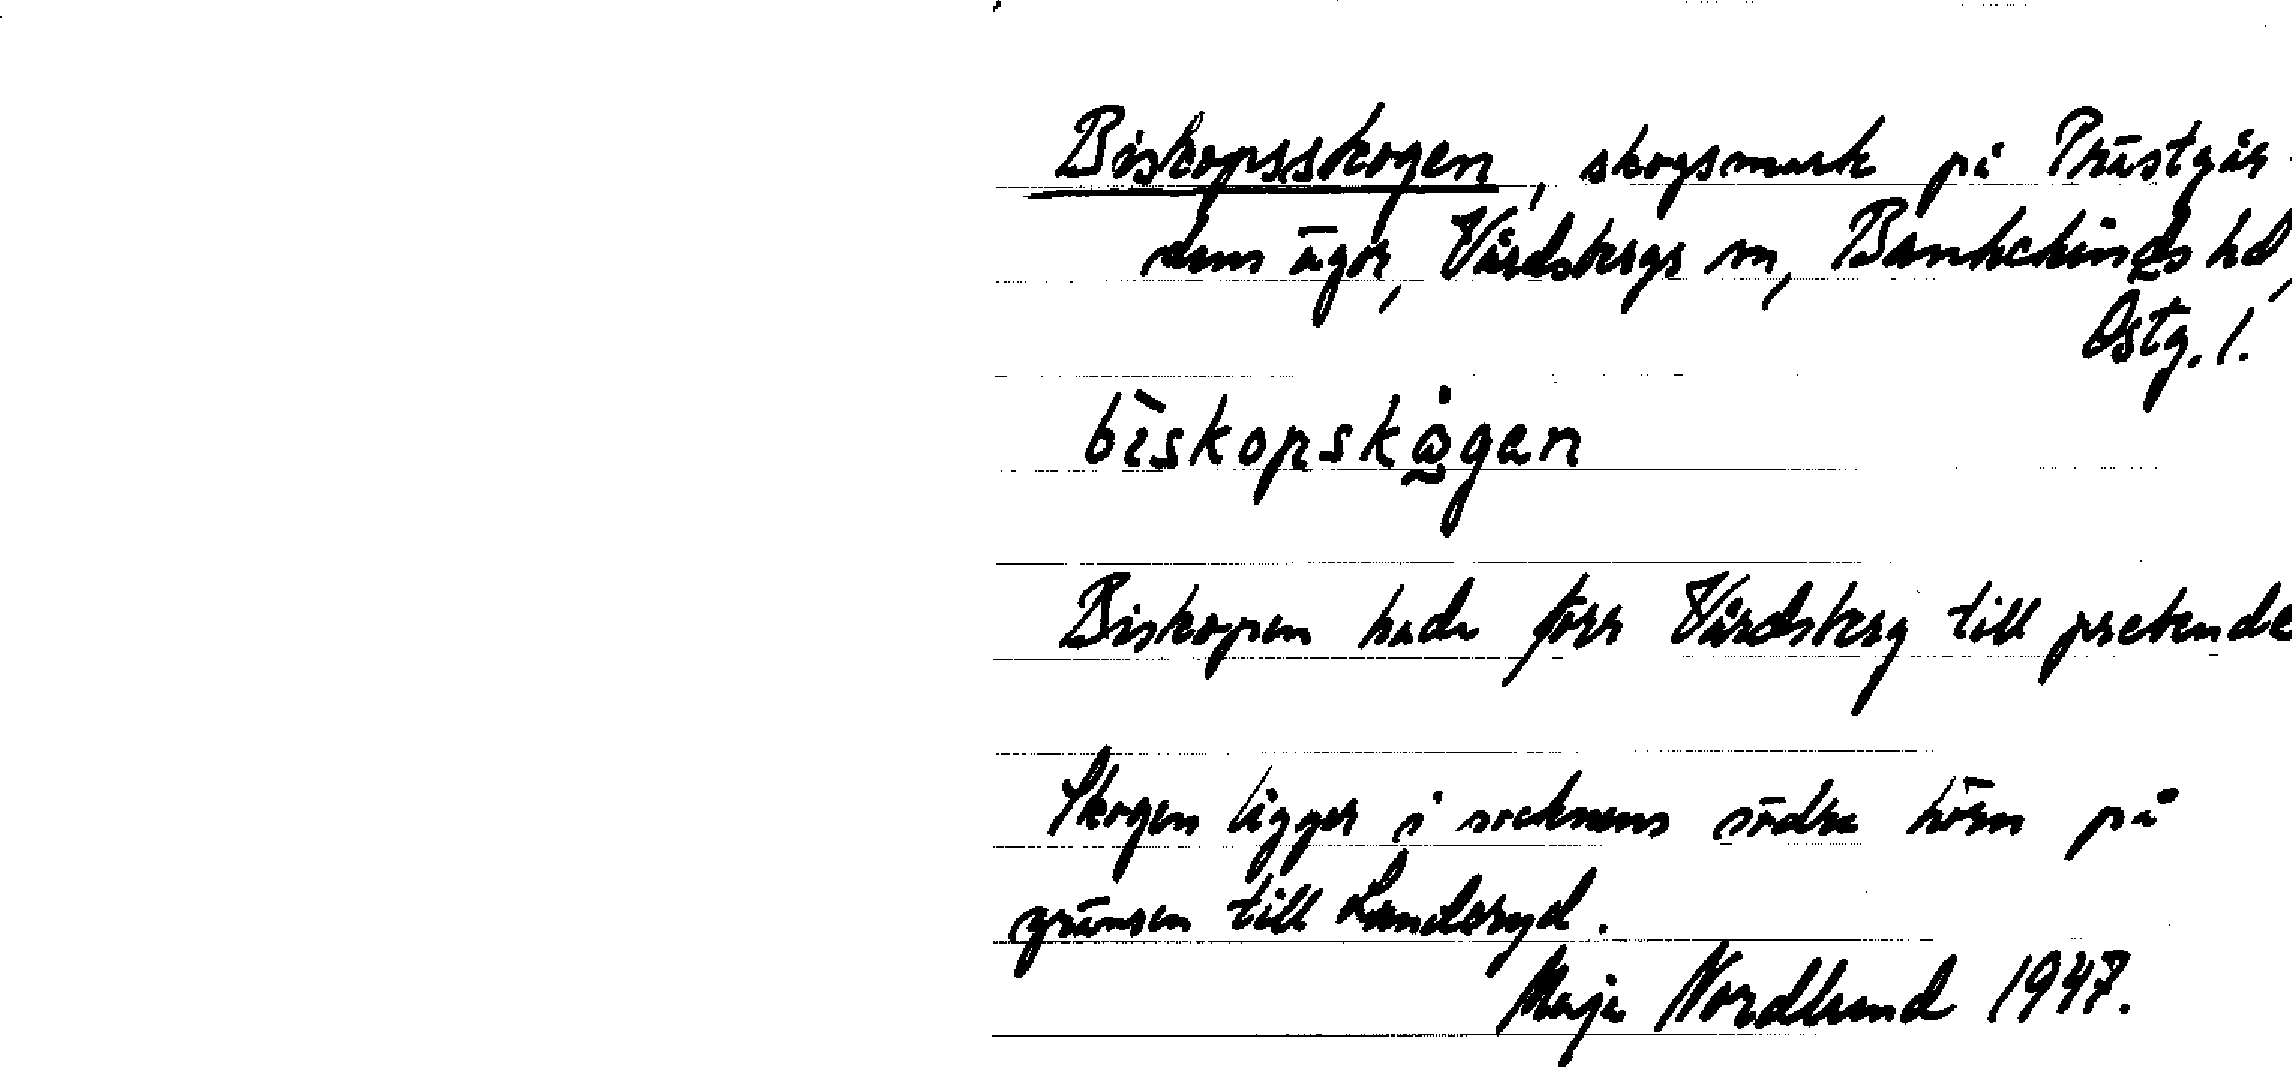 Biskopsskogen, skogsmark på Prästgår-
dens ägor, Vårdsbergs sn, Bankekinds hd,
Östg. l.
biskopskågen
Biskopen hade förr Vårdsberg till prebende
Skogen ligger i socknens södra hörn på
gränsen till Landeryd.
Maja Nordlund 1947.